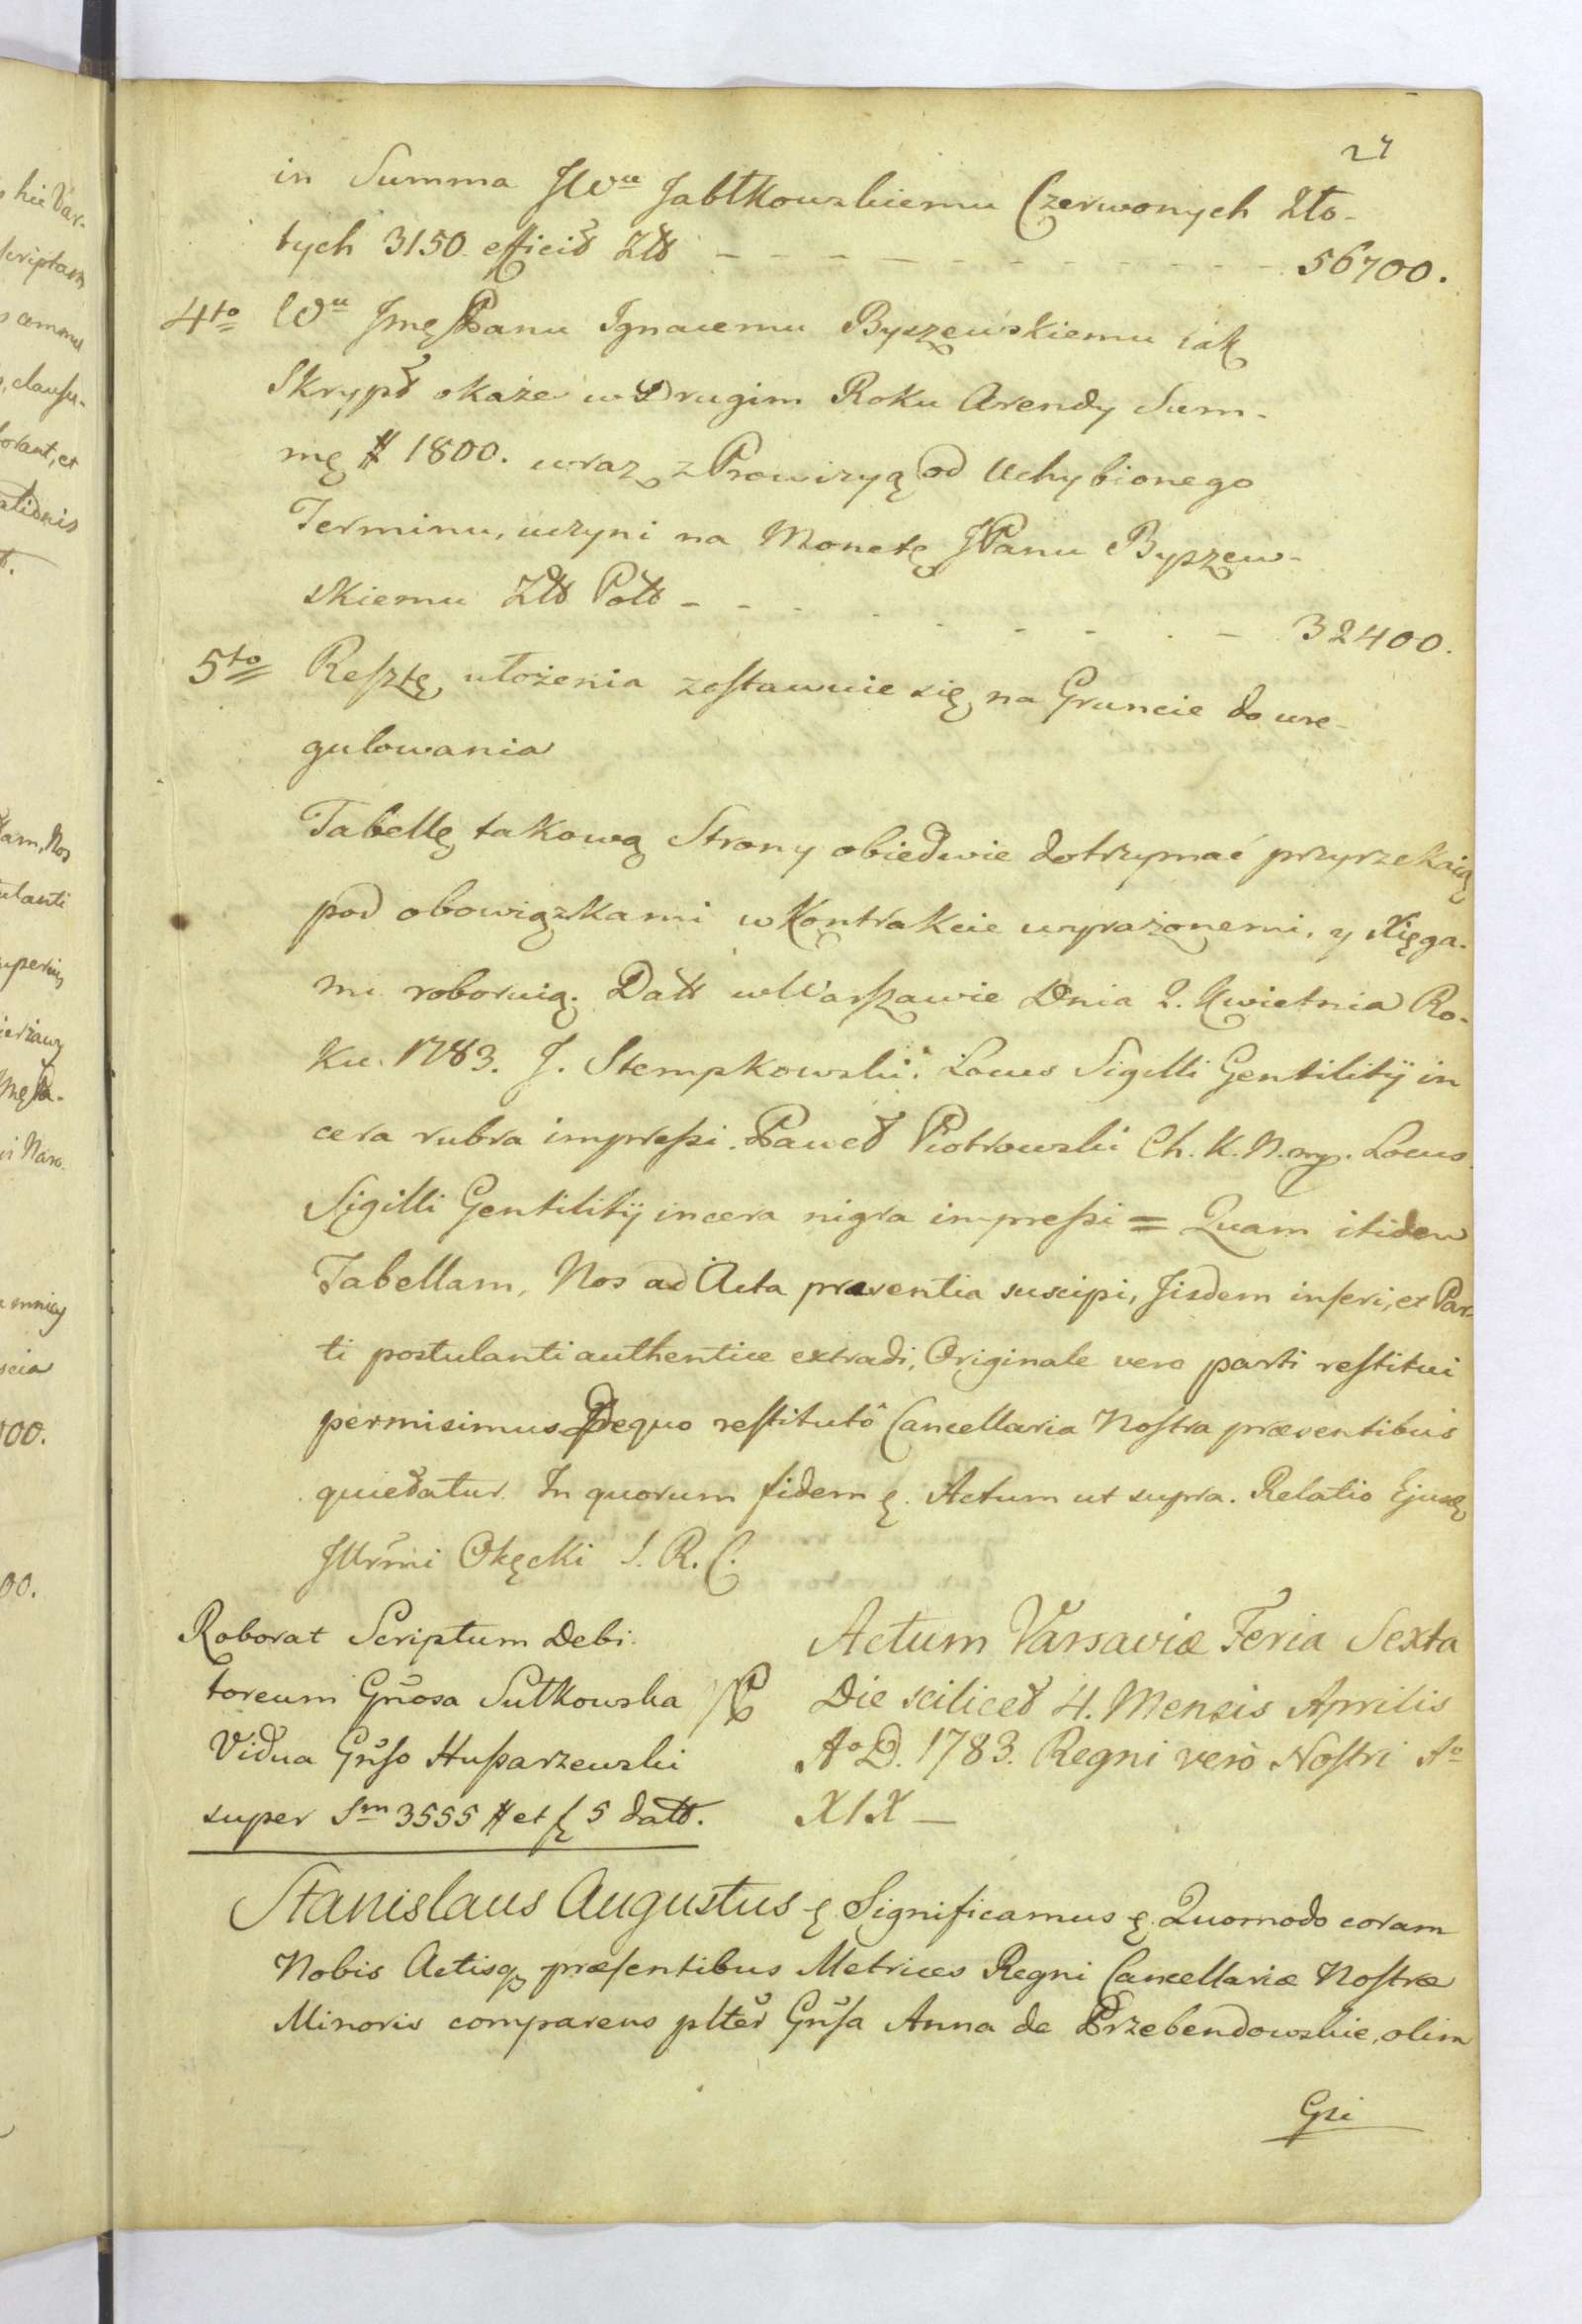 27
in Summa JWu Jabłkowskiemu Czerwonych Zło-
tych 3150. efficit Złł - - - - - - - - - - 56700.
4to Wu Jmę Panu Ignacemu Byszewskiemu iak
Skrypt okaże w Drugim Roku Arendy Sum-
mę # 1800. wraz z Prowizyą od Uchybionego
Terminu, uczyni na Monetę JPanu Byszew-
skiemu Złł Poll - - - - - - - 32400.
5to Resztę ułożenia zostawuie się na Gruncie do ure-
gulowania
Tabellę takową Strony obiedwie dotrzymać przyrzekaią
pod obowiązkami w Kontrakcie wyrażonemi, y Xięga-
mi roboruią. Datt w Warszawie Dnia 2. Kwietnia Ro-
ku. 1783. J. Stempkowski. Locus Sigilli Gentilitij in
cera rubra impressi. Paweł Piotrowski Ch. K. N. mp. Locus
Sigilli Gentilitij in cera nigra impressi = Quam itidem
Tabellam, Nos ad Acta præsentia suscipi, Jisdem inseri, et Par-
ti postulanti authentice extradi, Originale vero parti restitui
permisimus, De quo restitutô Cancellaria Nostra præsentibus
quietatur. In quorum fidem ę. Actum ut supra. Relatio Ejusdę
Jllrmi Okęcki S. R. C.
Roborat Scriptum Debi-
toreum Gnosa Sułkowska
Vidua Gnso Husarzewski
super Sm 3555 # et ƒ 5 datt.
Actum Varsaviæ Feria Sexta
Die scilicet 4. Mensis Aprilis
Ao D. 1783. Regni verò Nostri Ao
XIX —
Stanislaus Augustus ę Significamus ę. Quomodo coram
Nobis Actisq præsentibus Metrices Regni Cancellariæ Nostræ
Minoris comparens plter Gnsa Anna de Przebendowskie, olim
Gsi